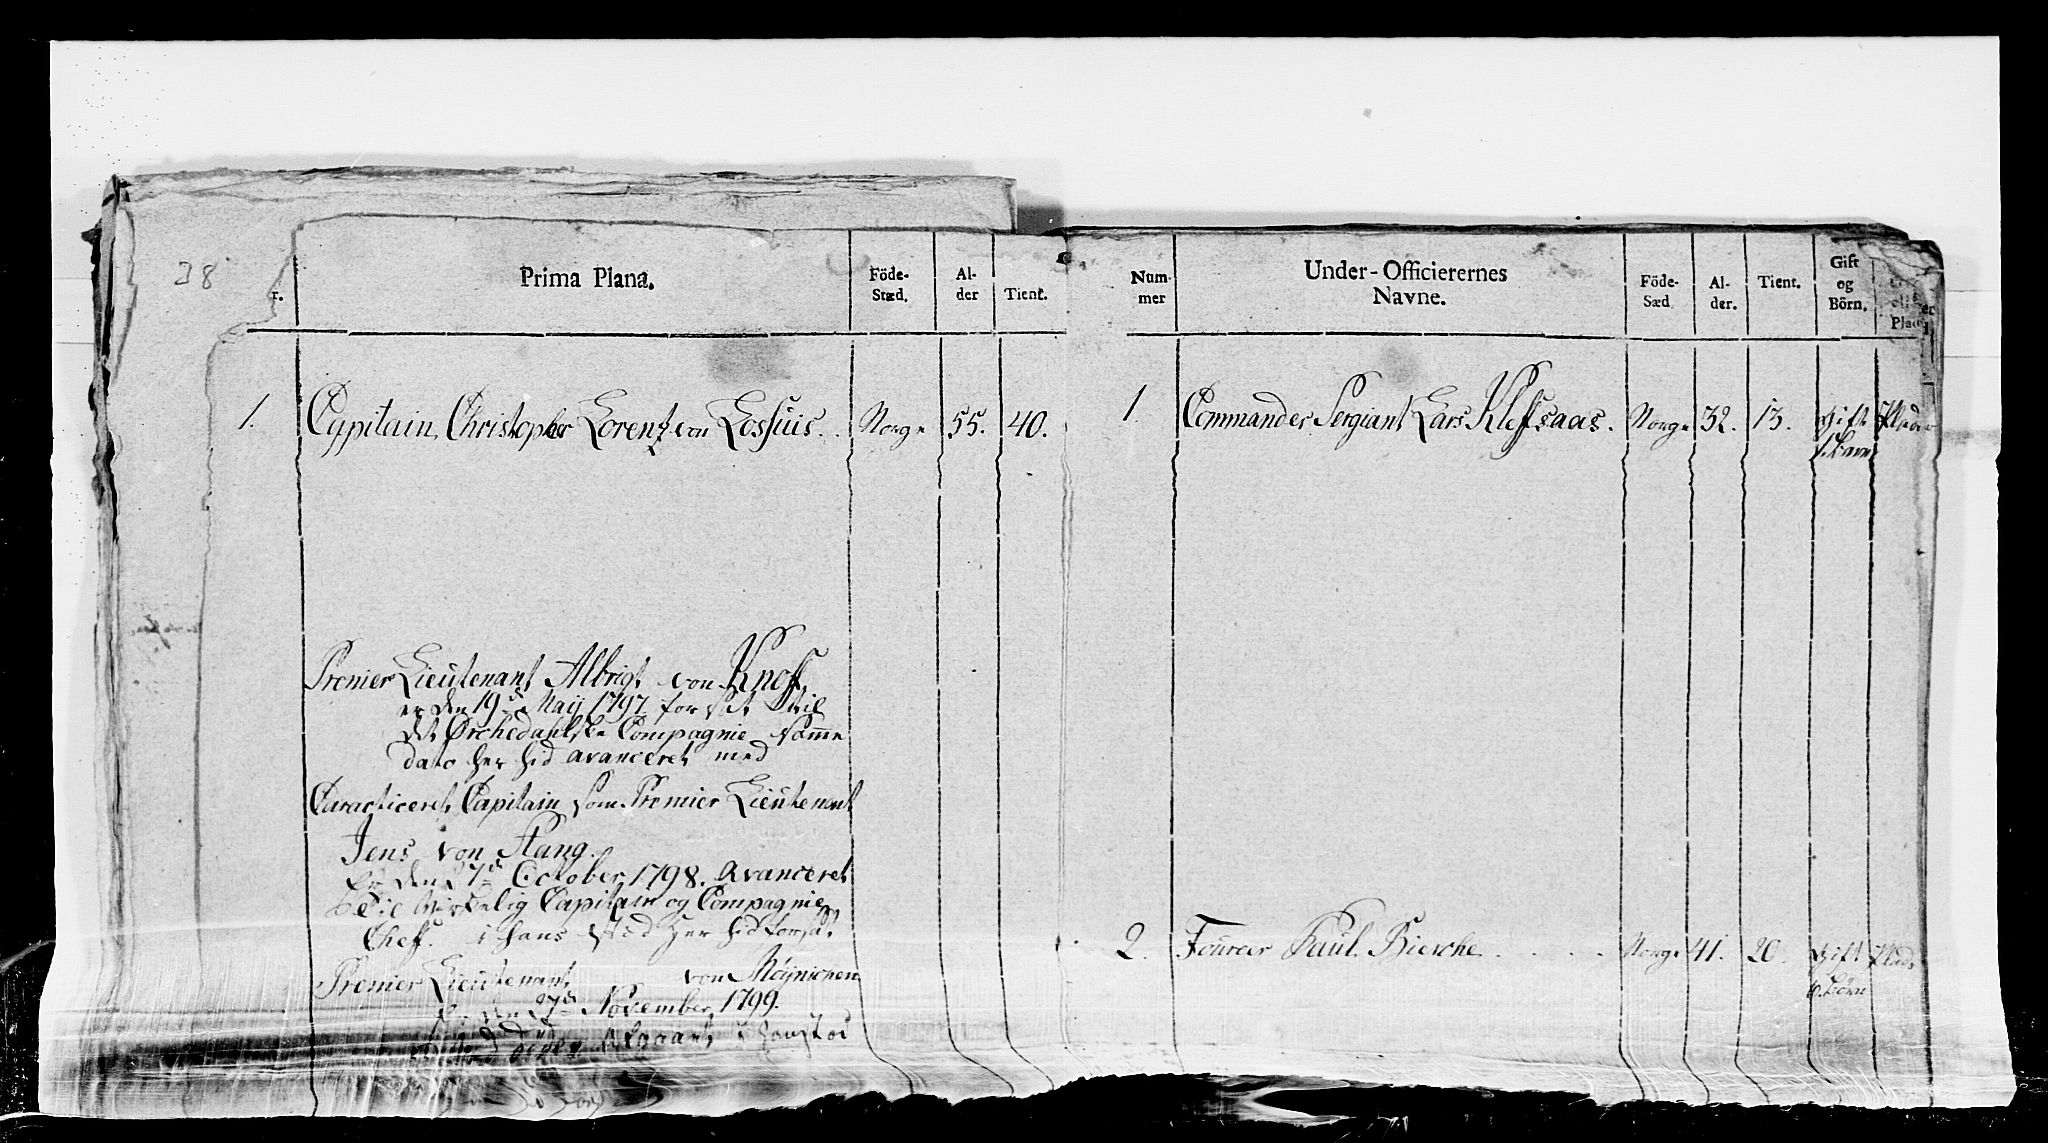 28
r.
Prima Plana.
Föde-
Stæd.
Al-
der
Tient.
1.
Capitain Christopher Lorentz von Lossuis
Norge
55.
40.
Premier Lieutenant Albrigt von Knoff
er den 19de Maij 1797 forsat til
det Ørchedahlske Compagnie samme
dato her hid avanceret med
Caracticeret Capitain som Premier Lieutenant
Jens von Stang.
Er den 7de October 1798. avanceret
Capitain og Compagnie
Cheff. i hans sted her hid forsat
Premier Lieutenant von Møynichen
er den November 1799.
Num-
mer
Under-Officierernes
Navne.
Föde-
Sæd
Al-
der.
Tient.
Gift
og
Börn.
1.
Commander Sergiant Lars Kleffsaas.
Norge
32.
13.
Gift
2.
Foureer Paul Biesche
Norge
41.
20.
Gift
6. Børn